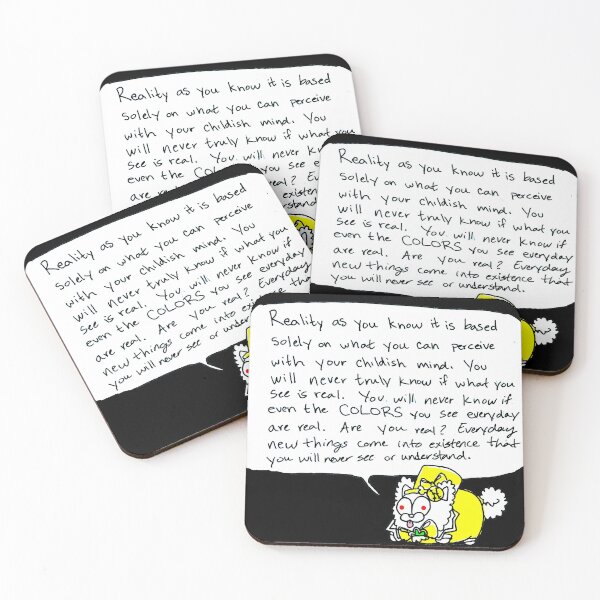 Reality as you know it is based
solely on what you can perceive
with your childish mind. You
will never truly know if what you
see is real. You will never know
even the COLORS you see
are real? Everyday
existence
understand.
Reality as you know it is based
solely on what you can perceive
with your childish mind. You
will never truly know if what you
see is real. You will never know if
even the COLORS you see everyday
are real. Are you real? Everyday
new things come into existence that
you will never see or understand.
Reality as you know it is based
solely on what you can perceive
with your childish mind. You
will never truly know if what you
see is real. You will never know if
even the COLORS you see everyday
are real. Are you real? Everyday
new things come into existence that
you will never see or
Reality as you know it is based
solely on what you can perceive
with your childish mind. You
will never truly know if what you
see is real. You will never know if
even the COLORS you see everyday
are real. Are you real? Everyday
new things come into existence that
you will never see or understand.